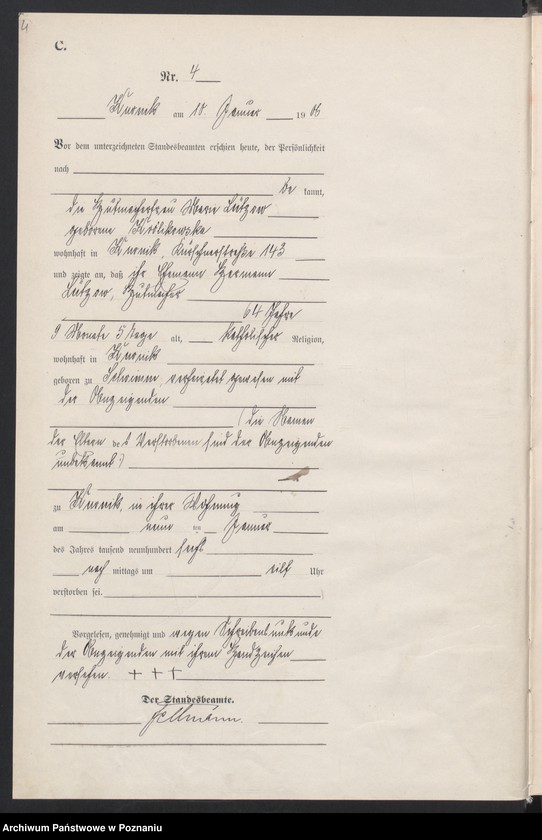 C.
Nr. 4
Kurnik am 10. Januar 1906
Vor dem unterzeichneten Standesbeamten erschien heute, der Persönlichkeit
nach
be kannt,
die Hutmacherfrau Marie Lützow
geborene
wohnhaft in Kurnik, 143
und zeigte an, daß ihr Ehemann Hermann
Lützow, Hutmacher
64 Jahre
9 Monate 5 Tage alt, katholischer Religion,
wohnhaft in Kurnik
geboren zu verheiratet gewesen mit
der Anzeigenden
(die Namen
der Eltern des Verstorbenen sind der Anzeigenden
unbekannt)
zu Kurnik, in ihrer Wohnung
am neun ten Januar
des Jahres tausend neunhundert sechs
nach mittags um elf Uhr
verstorben sei.
Vorgelesen, genehmigt und wegen Schreibensunkunde
der Anzeigenden mit ihrem Handzeichen
versehen. + + +
Der Standesbeamte.
Fellmann.
Archiwum Państwowe w Poznaniu